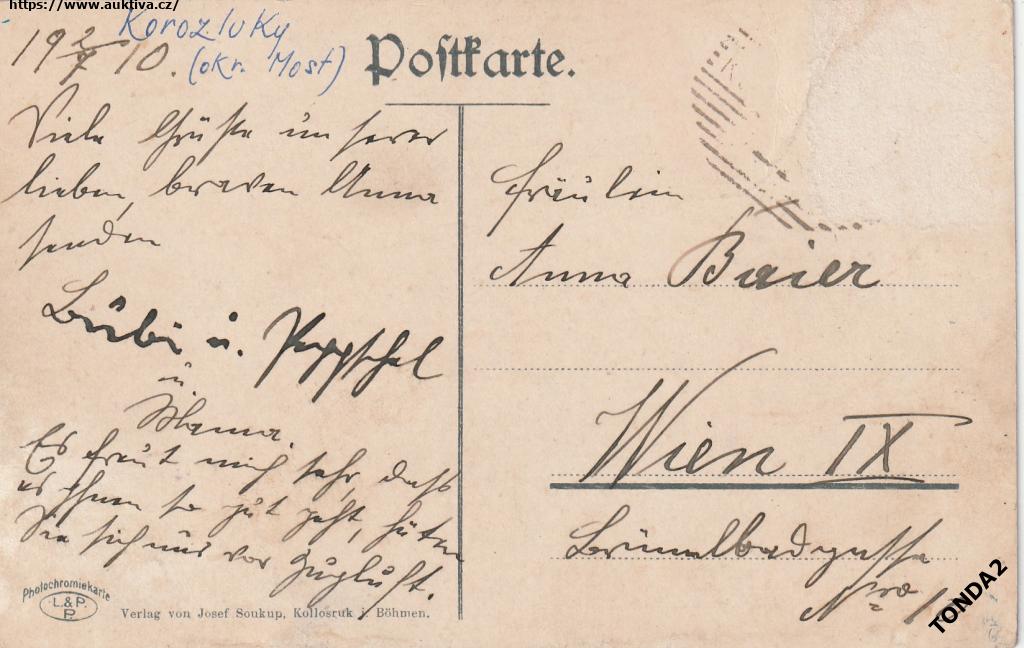 https://www.auktiva.cz/
Korozluky
(okr. Most)
19 2/7 10.
Postkarte.
Viele Grüße unserer
lieben, braven Anna
senden
Bubi u. Peppschel
u.
Mama.
Es freut mich sehr, daß
es Ihnen so gut geht, hüten
Sie sich nur vor Zugluft.
Fräulein
Anna Baier
Wien IX
Brünnelbadgasse
Nro 1
Photochromiekarte
L. & P.
P.
Verlag von Josef Soukup, Kollosruk i. Böhmen.
TONDA2